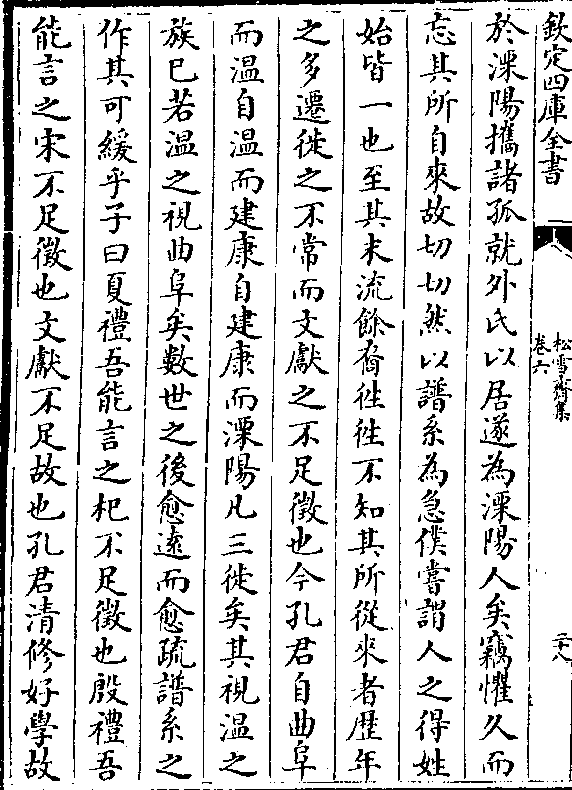 欽定四庫全書
松雪齋集
卷六
二十八
於溧陽攜諸孤就外氏以居遂為溧陽人矣竊懼久而
忘其所自來故切切然以譜系為急僕嘗謂人之得姓
始皆一也至其末流餘裔徃徃不知其所從來者歴年
之多遷徙之不常而文獻之不足徵也今孔君自曲阜
而温自温而建康自建康而溧陽凡三徙矣其視温之
族已若温之視曲阜矣數世之後愈逺而愈疏譜系之
作其可緩乎子曰夏禮吾能言之杞不足徵也殷禮吾
能言之宋不足徵也文獻不足故也孔君清修好學故